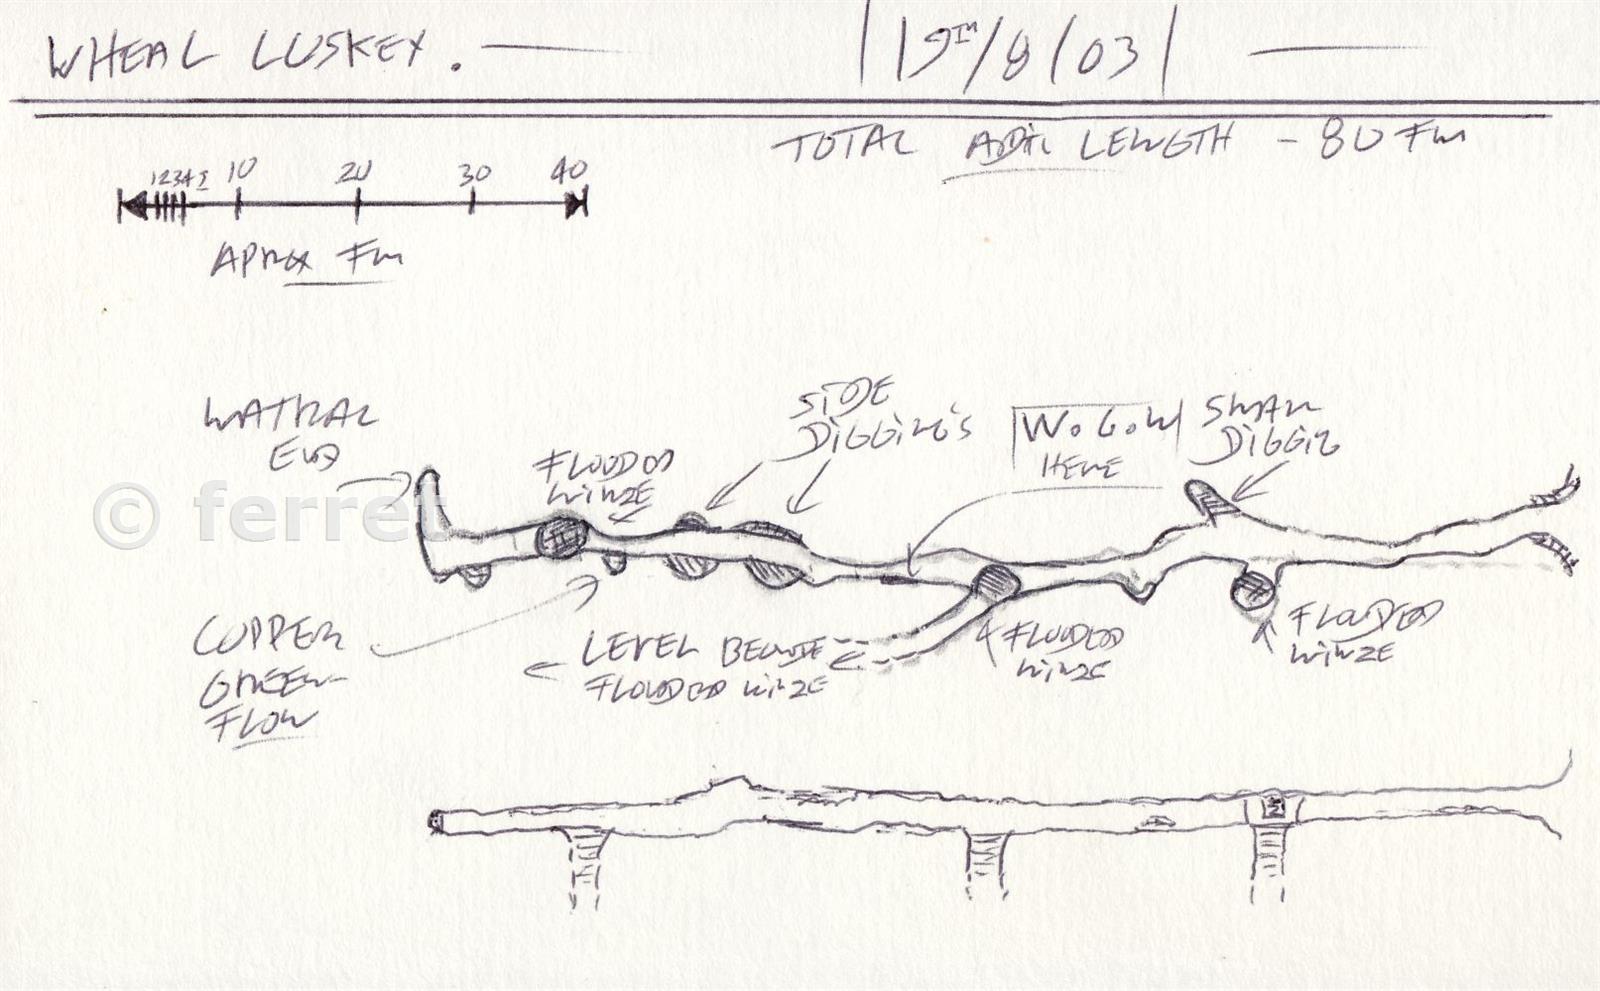 WHEAL LUSKEY.
19TH/8/03
TOTAL ADIT LENGTH - 80 FM
1 2 3 4 5 10 20 30 40
APROX FM
SIDE
DIGGING'S
W.G.W
HERE
SMALL
DIGGIN
END
FLOODED
WINZE
© ferret
COPPER
GREEN
FLOW
LEVEL BECOME
FLOODED WINZE
FLOODED
WINZE
FLOODED
WINZE